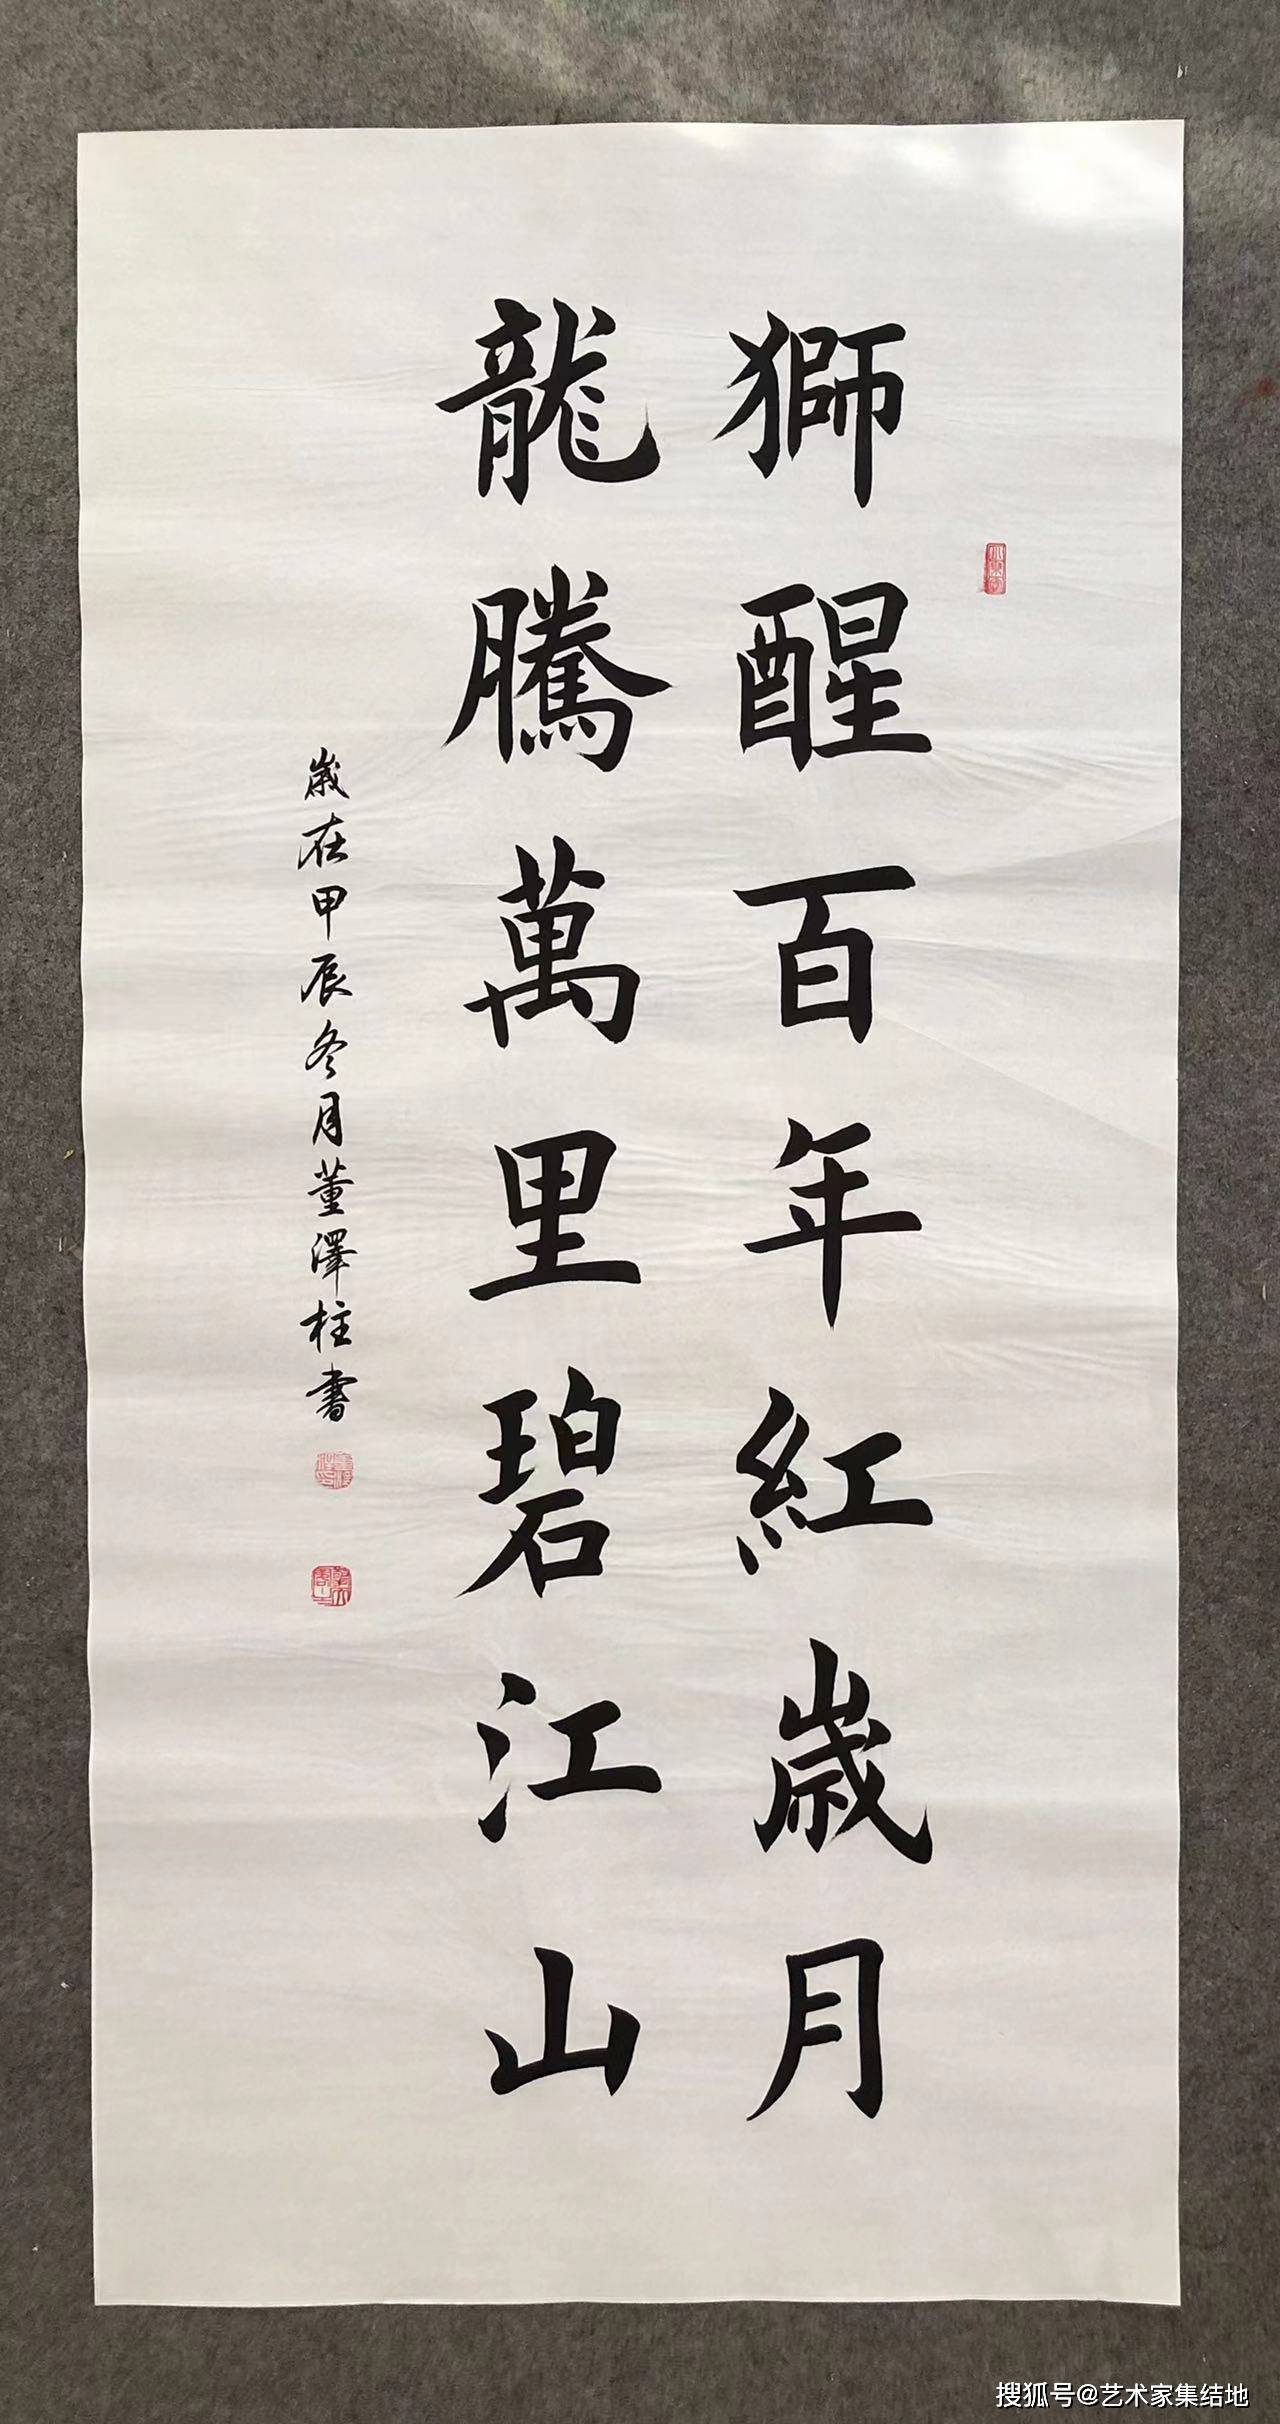 獅醒百年紅歲月
龍騰萬里碧江山
歲在甲辰冬月董澤柱書
搜狐号@艺术家集结地